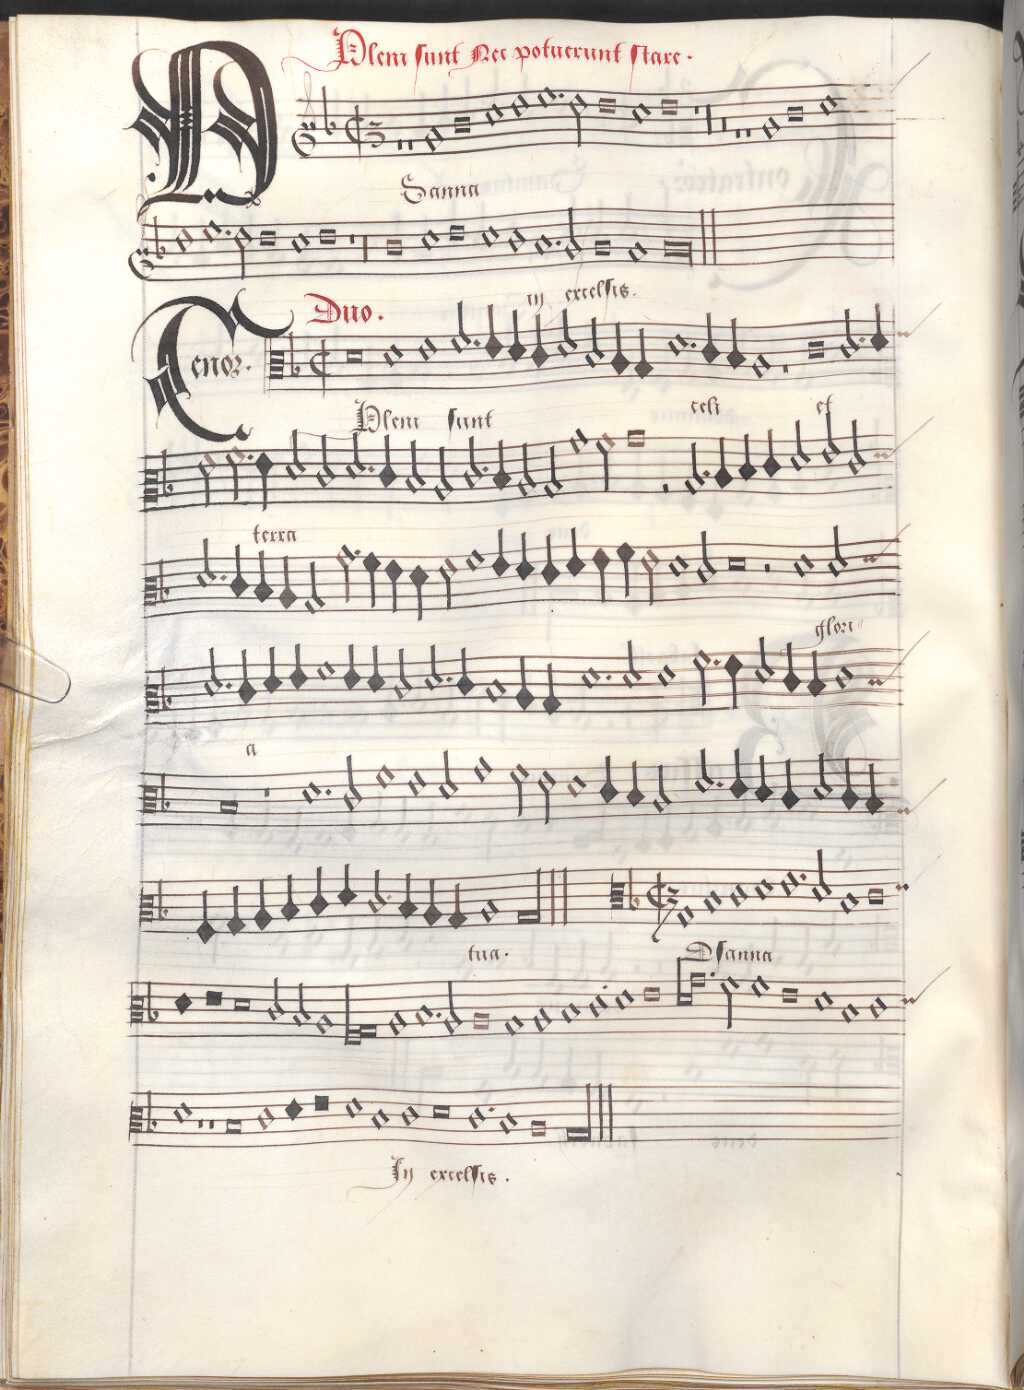 Pleni sunt Nec potuerunt stare.
OSanna
in excelsis.
Duo.
Tenor.
Pleni sunt celi et
terra
glori
a
tua. Osanna
In excelsis.